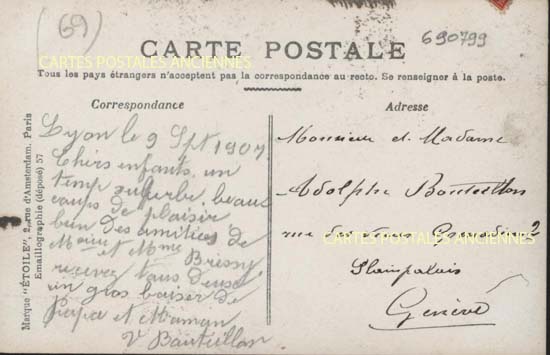 (69)
690799
CARTE POSTALE
CARTES POSTALES ANCIENNES
Tous les pays étrangers n'acceptent pas la correspondance au recto. Se renseigner à la poste.
Correspondance
Lyon le 9 Spt 1907
Chers enfants, un
temp superbe, beau
coups de plaisir
bien des amitiées de
et Mme Brissy
recevez tous deux
un gros baiser de
Papa et Maman
V Bouteillon
Adresse
Monsieur et Madame
Adolphe Bouteillon
rue des 2
CARTES POSTALES ANCIENNES
Plainpalais
Genève
Marque "ÉTOILE", 2, rue d'Amsterdam, Paris
Emaillographie (déposé) 57